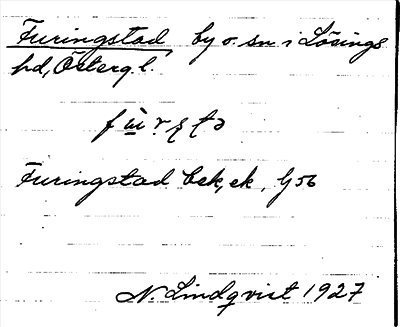 Furingstad, by o. sn i Lösings
hd, Östergl.
Furingstad bek, ek, G56
N. Lindqvist 1927